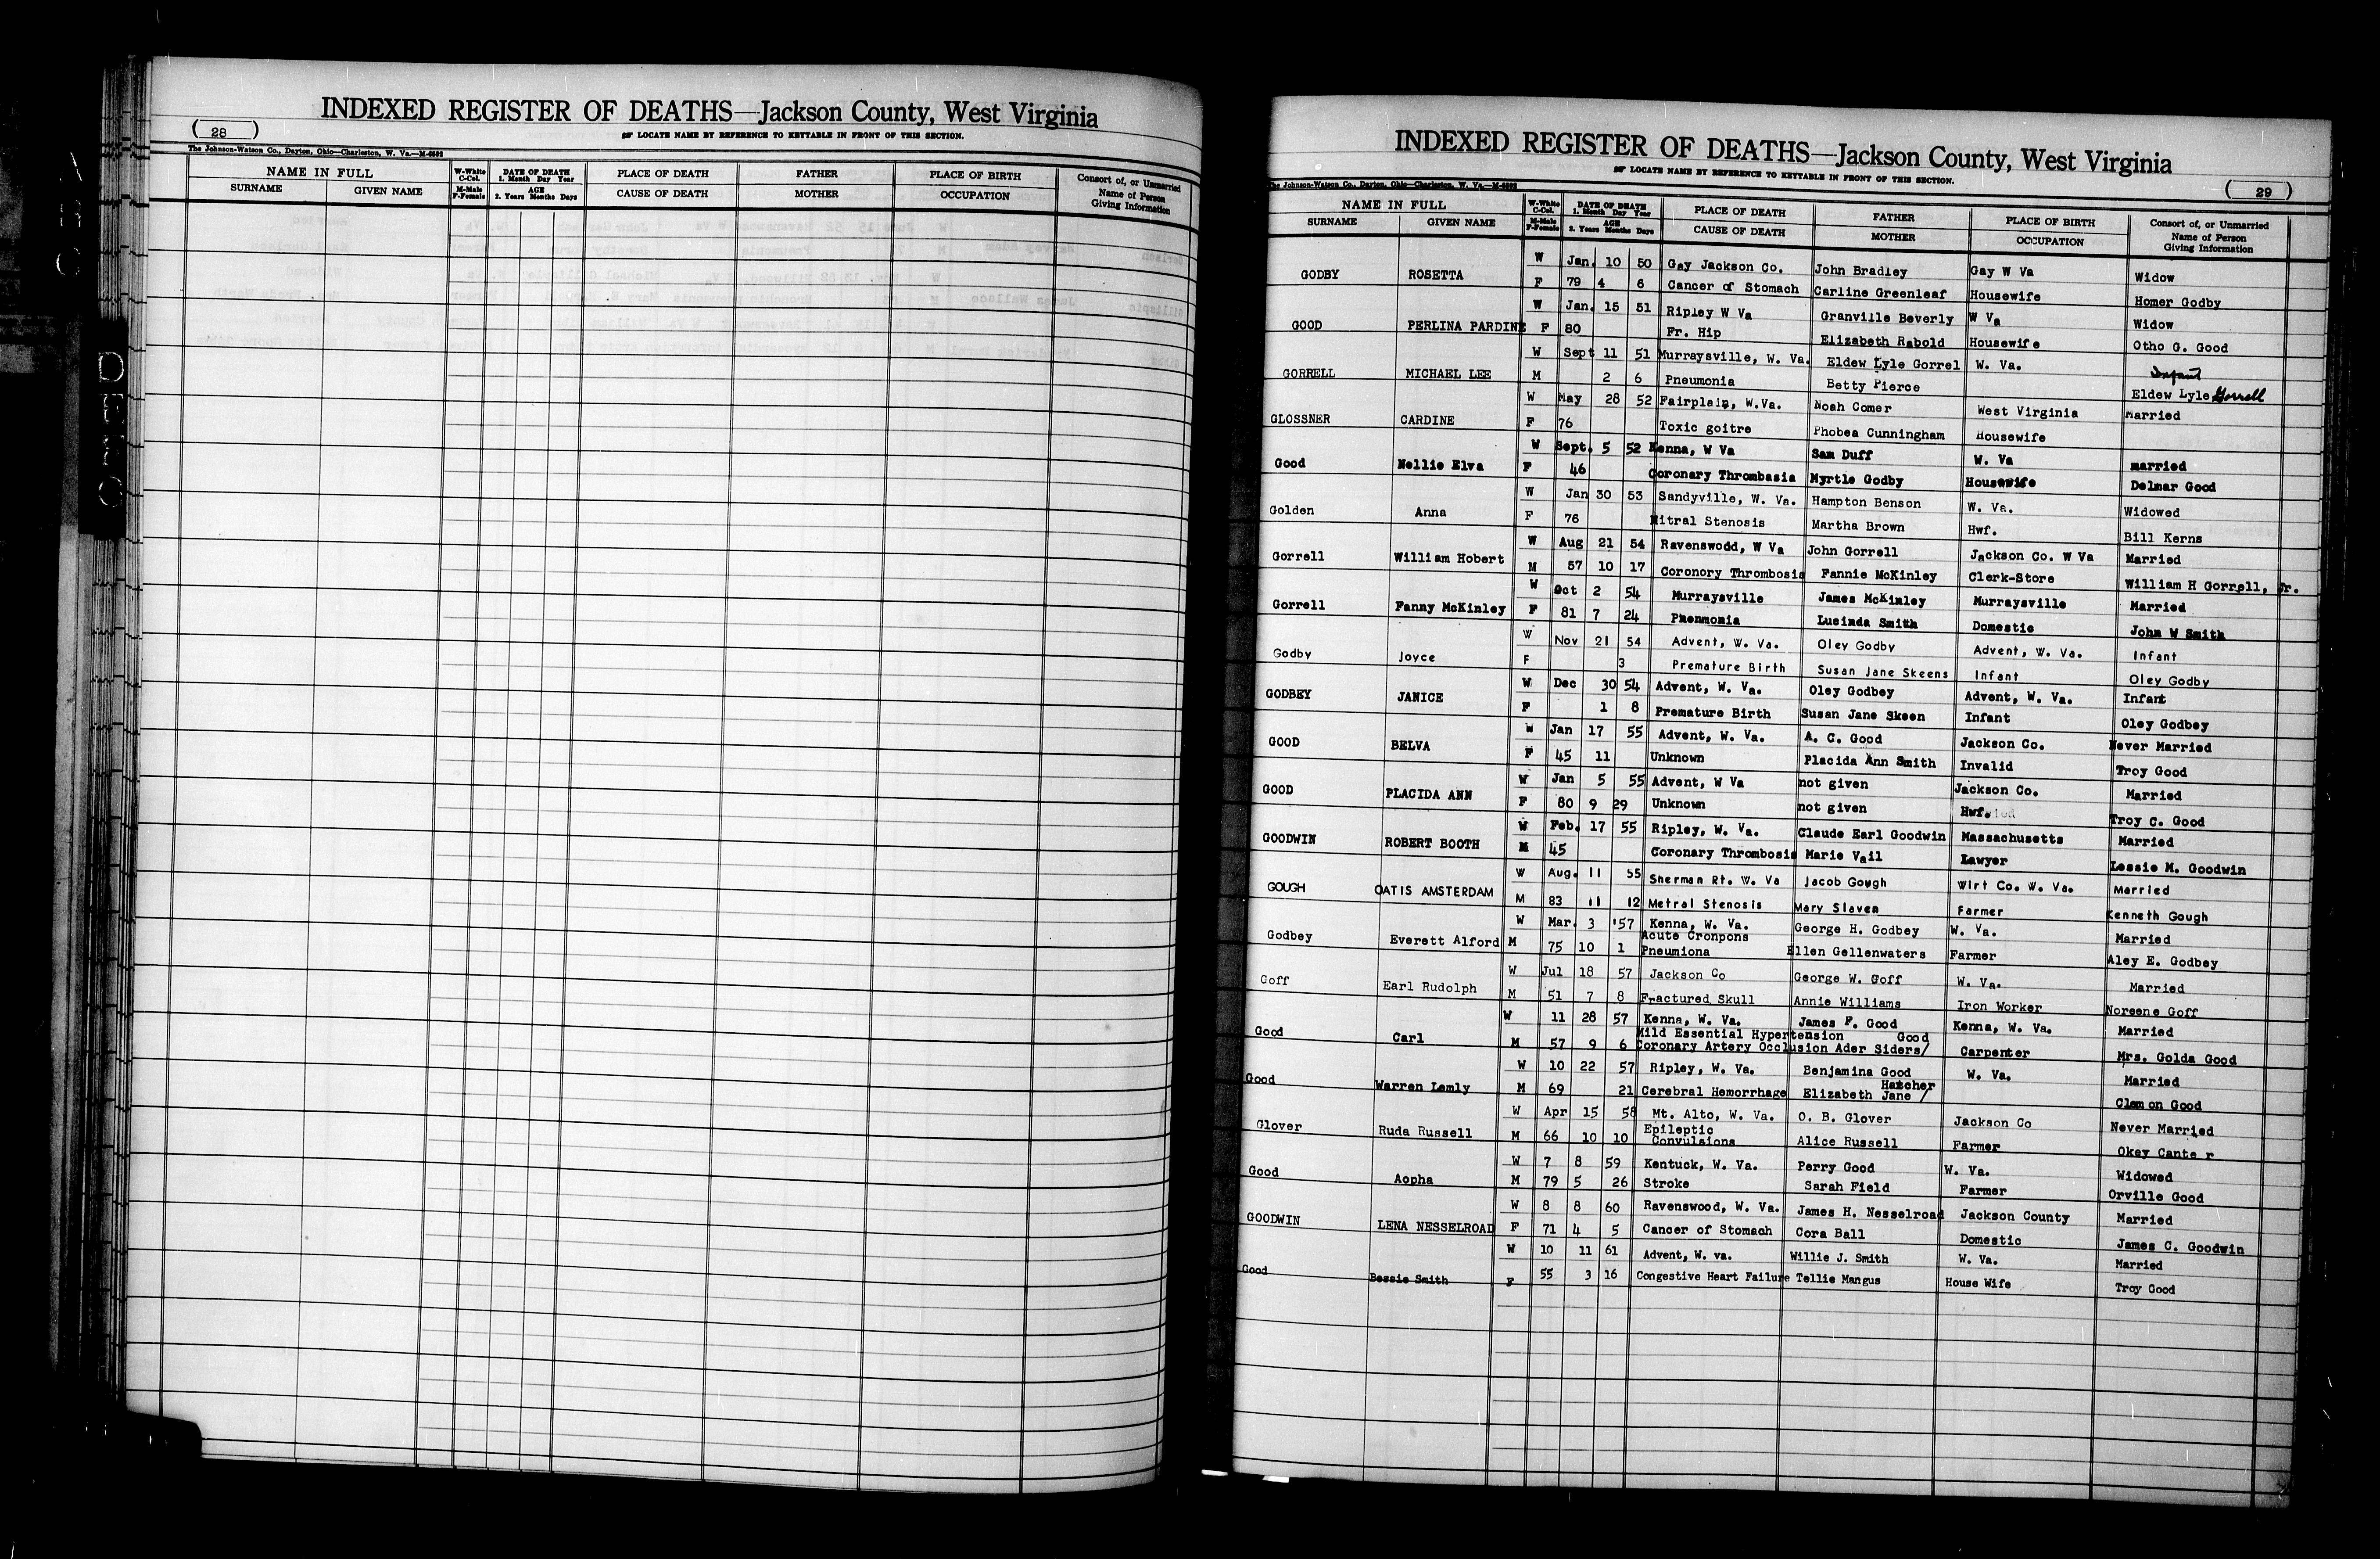 INDEXED REGISTER OF DEATHS—Jackson County, West Virginia
( 28 )
LOCATE NAME BY REFERENCE TO KEYTABLE IN FRONT OF THIS SECTION.
The Johnson-Watson Co., Dayton, Ohio—Charleston, W. Va.—M-6592
NAME IN FULL W-White C-Col. DATE OF DEATH 1. Month Day Year PLACE OF DEATH FATHER PLACE OF BIRTH Consort of, or Unmarried
SURNAME GIVEN NAME M-Male F-Female AGE 2. Years Months Days CAUSE OF DEATH MOTHER OCCUPATION Name of Person Giving Information
INDEXED REGISTER OF DEATHS—Jackson County, West Virginia
LOCATE NAME BY REFERENCE TO KEYTABLE IN FRONT OF THIS SECTION.
The Johnson-Watson Co., Dayton, Ohio—Charleston, W. Va.—M-6592
( 29 )
NAME IN FULL W-White C-Col. DATE OF DEATH 1. Month Day Year PLACE OF DEATH FATHER PLACE OF BIRTH Consort of, or Unmarried
SURNAME GIVEN NAME M-Male F-Female AGE 2. Years Months Days CAUSE OF DEATH MOTHER OCCUPATION Name of Person Giving Information
W Jan. 10 50 Gay Jackson Co. John Bradley Gay W Va Widow
GODBY ROSETTA F 79 4 6 Cancer of Stomach Carline Greenleaf Housewife Homer Godby
W Jan. 15 51 Ripley W Va Granville Beverly W Va Widow
GOOD PERLINA PARDINE F 80 Fr. Hip Elizabeth Rabold Housewife Otho G. Good
W Sept 11 51 Murraysville, W. Va. Eldew Lyle Gorrel W. Va. Infant
GORRELL MICHAEL LEE M 2 6 Pneumonia Betty Pierce Eldew Lyle Gorrell
W May 28 52 Fairplain, W.Va. Noah Comer West Virginia Married
GLOSSNER CARDINE F 76 Toxic goitre Phobea Cunningham Housewife
W Sept. 5 52 Kenna, W Va Sam Duff W. Va married
Good Nellie Elva F 46 Coronary Thrombasia Myrtle Godby Housewife Delmar Good
W Jan 30 53 Sandyville, W. Va. Hampton Benson W. Va. Widowed
Golden Anna F 76 Mitral Stenosis Martha Brown Hwf. Bill Kerns
W Aug 21 54 Ravenswodd, W Va John Gorrell Jackson Co. W Va Married
Gorrell William Hobert M 57 10 17 Coronory Thrombosis Fannie McKinley Clerk-Store William H Gorrell, Jr.
W Oct 2 54 Murraysville James McKinley Murraysville Married
Gorrell Fanny McKinley F 81 7 24 Phenmonia Lucinda Smith Domestic John W Smith
W Nov 21 54 Advent, W. Va. Oley Godby Advent, W. Va. Infant
Godby Joyce F 3 Premature Birth Susan Jane Skeens Infant Oley Godby
W Dec 30 54 Advent, W. Va. Oley Godbey Advent, W. Va. Infant
GODBEY JANICE F 1 8 Premature Birth Susan Jane Skeen Infant Oley Godbey
W Jan 17 55 Advent, W. Va. A. C. Good Jackson Co. Never Married
GOOD BELVA F 45 11 Unknown Placida Ann Smith Invalid Troy Good
W Jan 5 55 Advent, W Va not given Jackson Co. Married
GOOD PLACIDA ANN F 80 9 29 Unknown not given Hwf. Troy C. Good
W Feb. 17 55 Ripley, W. Va. Claude Earl Goodwin Massachusetts Married
GOODWIN ROBERT BOOTH M 45 Coronary Thrombosis Marie Vail Lawyer Lessie M. Goodwin
W Aug. 11 55 Sherman Rt. W. Va Jacob Gough Wirt Co. W. Va. Married
GOUGH OATIS AMSTERDAM M 83 11 12 Metral Stenosis Mary Slaven Farmer Kenneth Gough
W Mar. 3 '57 Kenna, W. Va. George H. Godbey W. Va. Married
Godbey Everett Alford M 75 10 1 Acute Cronpons Pneumiona Ellen Gellenwaters Farmer Aley E. Godbey
W Jul 18 57 Jackson Co George W. Goff W. Va. Married
Goff Earl Rudolph M 51 7 8 Fractured Skull Annie Williams Iron Worker Noreene Goff
W 11 28 57 Kenna, W. Va. James F. Good Kenna, W. Va. Married
Good Carl M 57 9 6 Mild Essential Hypertension Coronary Artery Occlusion Ader Siders/ Good Carpenter Mrs. Golda Good
W 10 22 57 Ripley, W. Va. Benjamina Good W. Va. Married
Good Warren Lemly M 69 21 Cerebral Hemorrhage Elizabeth Jane / Hatcher Clemon Good
W Apr 15 58 Mt. Alto, W. Va. O. B. Glover Jackson Co Never Married
Glover Ruda Russell M 66 10 10 Epileptic Convulsions Alice Russell Farmer Okey Cante r
W 7 8 59 Kentuck, W. Va. Perry Good W. Va. Widowed
Good Aopha M 79 5 26 Stroke Sarah Field Farmer Orville Good
W 8 8 60 Ravenswood, W. Va. James H. Nesselroad Jackson County Married
GOODWIN LENA NESSELROAD F 71 4 5 Cancer of Stomach Cora Ball Domestic James C. Goodwin
W 10 11 61 Advent, W. va. Willie J. Smith W. Va. Married
Good Bessie Smith F 55 3 16 Congestive Heart Failure Tellie Mangus House Wife Troy Good